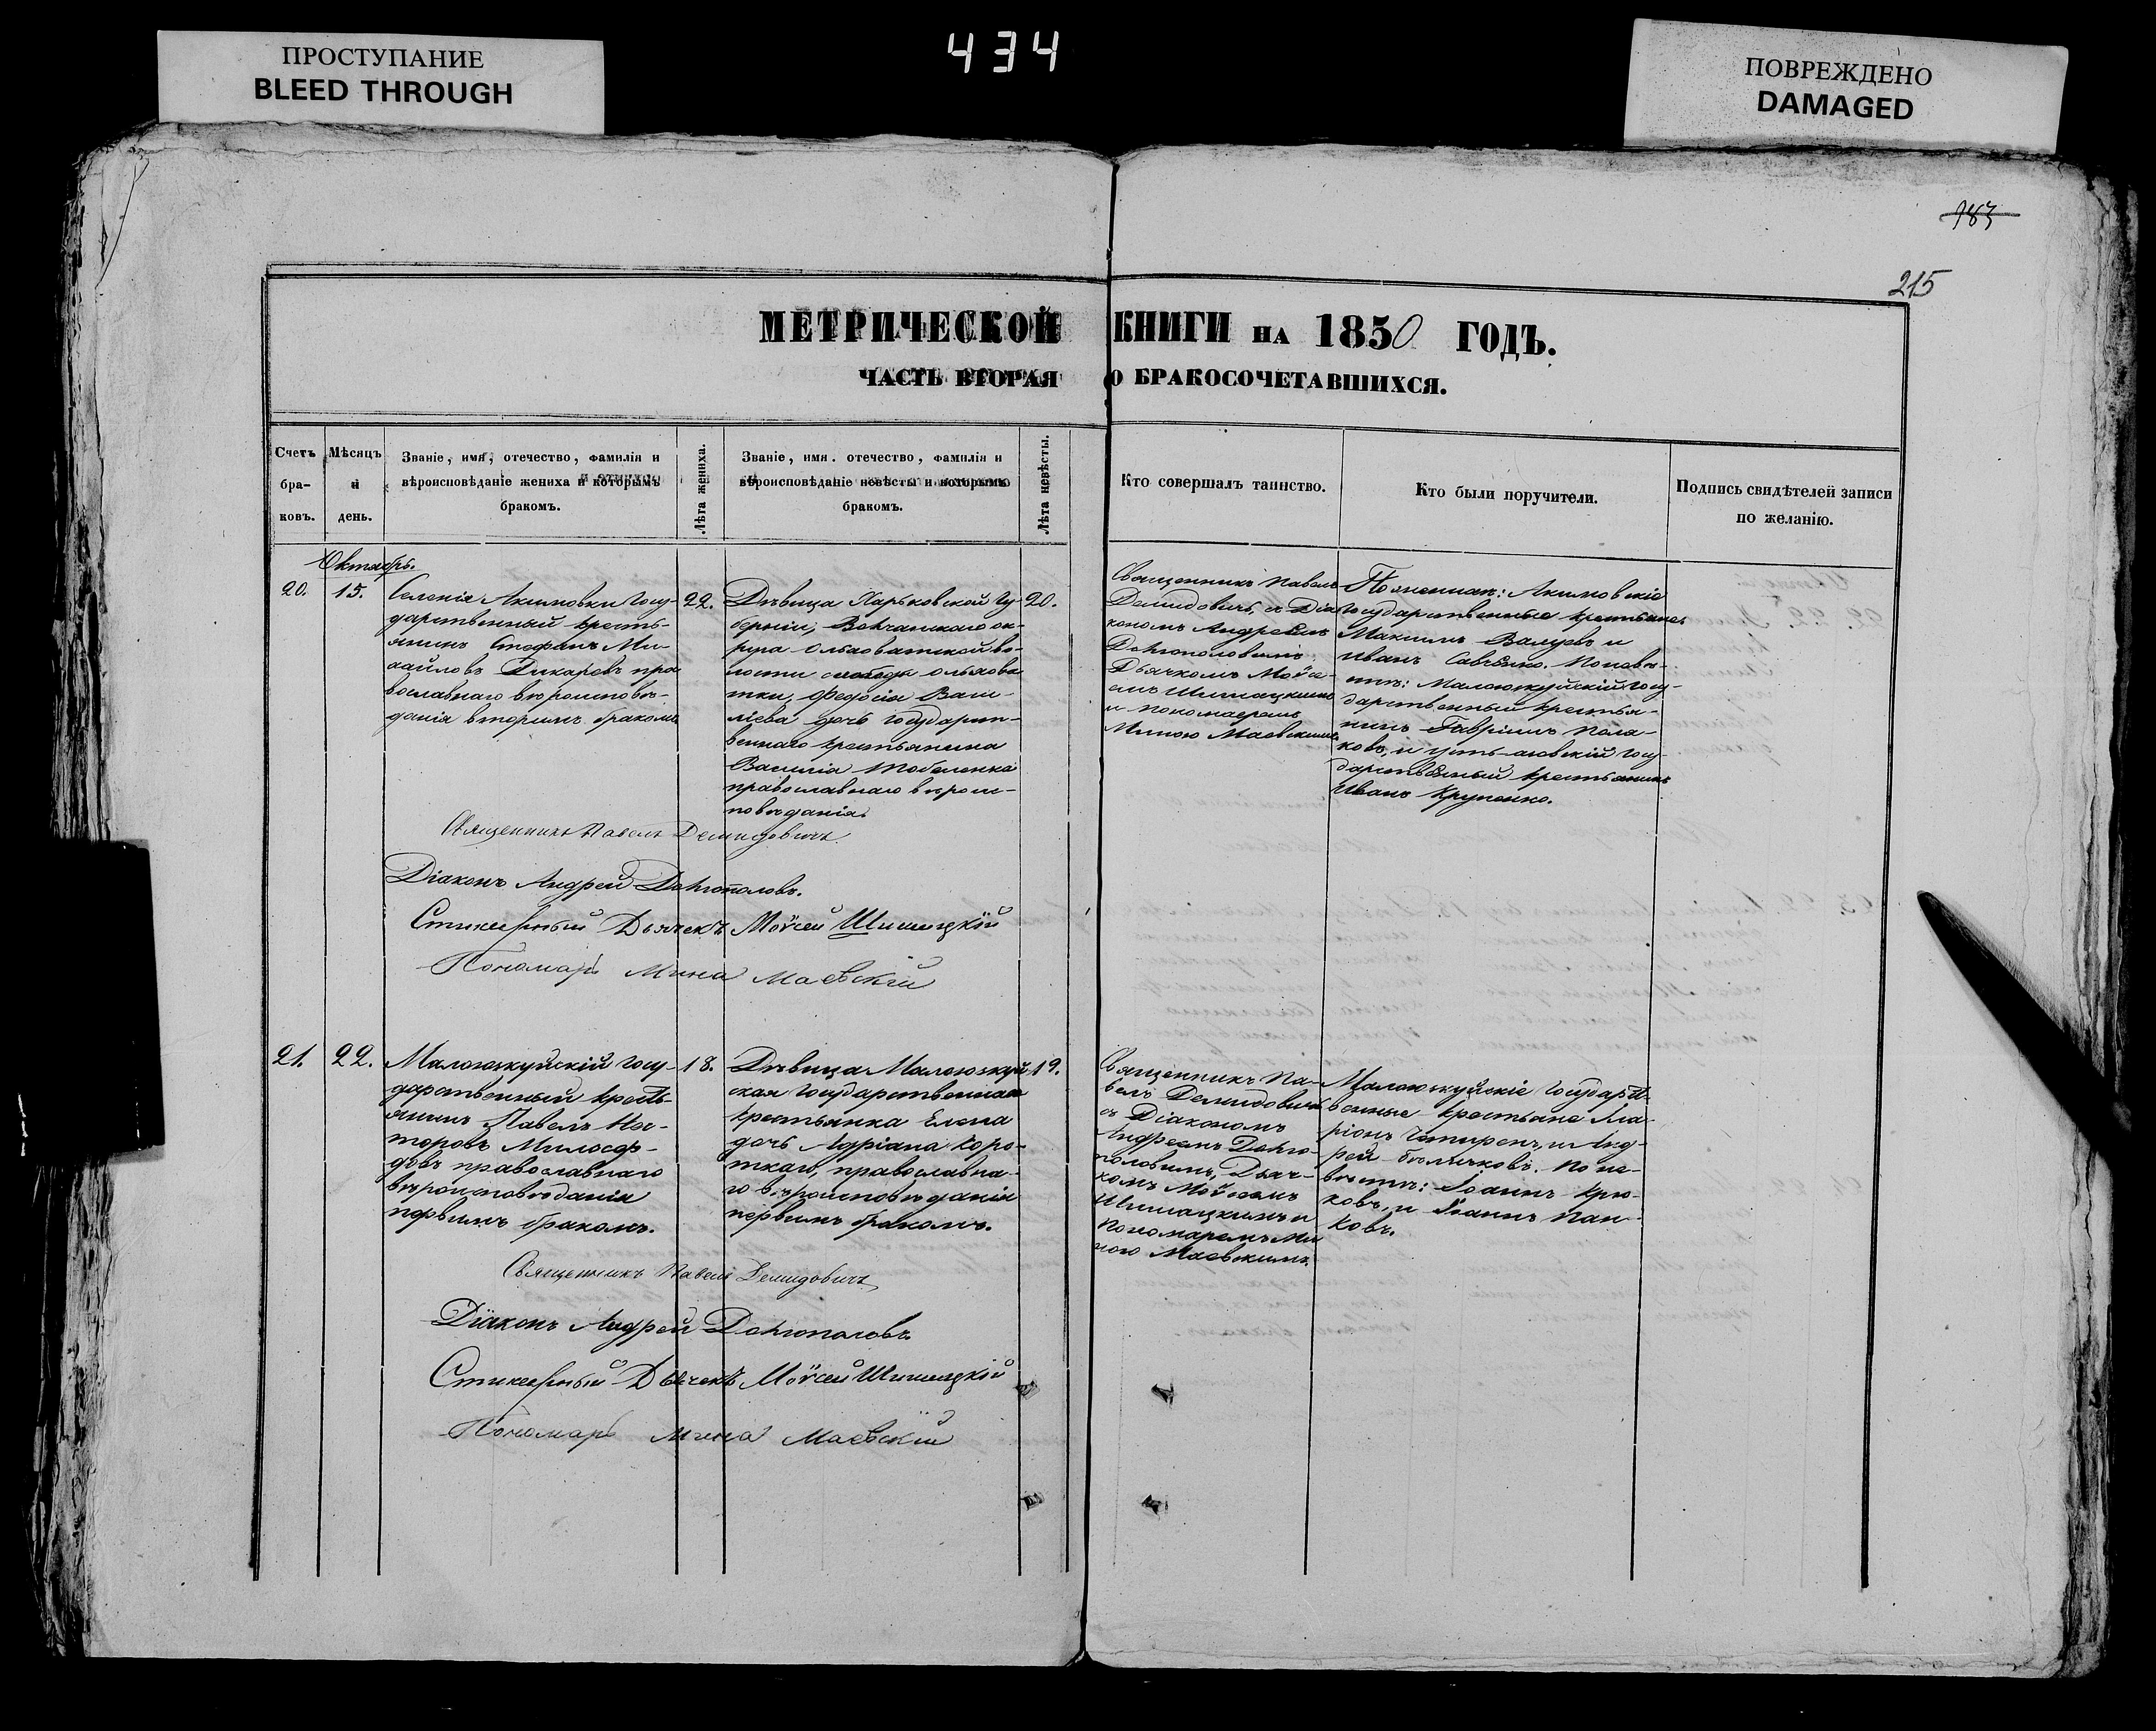 ПРОСТУПАНИЕ
BLEED THROUGH
434
ПОВРЕЖДЕНО
DAMAGED
983
215
МЕТРИЧЕСКОЙ КНИГИ НА 1850 ГОДЪ.
ЧАСТЬ ВТОРАЯ О БРАКОСОЧЕТАВШИХСЯ.
Счетъ
бра-
ковъ.
Мѣсяцъ
и
день.
Званіе, имя, отечество, фамилія и
вѣроисповѣданіе жениха и которымъ
бракомъ.
Лѣта жениха.
Званіе, имя. отечество, фамилія и
вѣроисповѣданіе невѣсты и которымъ
бракомъ.
Лѣта невѣсты.
Кто совершалъ таинство.
Кто были поручители.
Подпись свидѣтелей записи
по желанію.
Октябрь.
20.
15.
Селенія Акимовки Госу-
дарственный кресть-
янинъ Стефанъ Ми-
хайловъ Дикаревъ пра
вославнаго вѣроисповѣ-
данія вторымъ бракомъ
22.
Дѣвица Харьковской Гу-
берніи, Волчанскаго ок-
руга Ольховатской во-
лости слободы Ольхова
тки, Федосія Васи-
ліева дочь государст-
веннаго крестьянина
Василія
православнаго вѣроис-
повѣданія.
20.
Священникъ Павелъ
Демидовичъ, съ Діа
кономъ Андреемъ
Долгополовымъ
Дьячкомъ Моѵсе-
емъ Шишацкимъ
и пономаремъ
Миною Маевскимъ
По женихѣ: Акимовскіе
государственные крестьяне
Максимъ Валуевъ и
Иванъ Савченко. По невѣ-
стѣ: Малоюжкуйскій госу-
дарственный крестья-
нинъ Гавріилъ Поля-
ковъ, и госу-
дарственный крестьянинъ
Иванъ Крупенко.
Священникъ Павелъ Демидовичъ
Діаконъ Андрей Долгополовъ.
Стихарный Дьячекъ Моѵсей Шишацкій
Пономарь Мина Маевскій
21.
22.
Малоюжкуйскій госу-
дарственный кресть-
янинъ Павелъ Нес-
торовъ Милосер-
довъ православнаго
вѣроисповѣданія
первымъ бракомъ.
18.
Дѣвица Малоюжкуй
ская государственная
крестьянка Елена
дочь Адріана Коро-
ткаго, православна-
го вѣроисповѣданія
первымъ бракомъ.
19.
Священникъ Па-
велъ Демидовичъ
съ Діакономъ
Андреемъ Долго-
половымъ, Дьяч-
комъ Моѵсеемъ
Шишацкимъ и
Пономаремъ Ми
ною Маевскимъ.
Малоюжкуйскіе государст-
венные крестьяне Ила-
ріонъ и Анд-
рей Бѣличковъ. По не-
вѣстѣ: Іоаннъ Крю-
ковъ, и Іоаннъ Пан-
ковъ.
Священникъ Павелъ Демидовичъ
Діаконъ Андрей Долгополовъ
Стихарный Дьячекъ Моѵсей Шишацкій
Пономарь Мина Маевскій